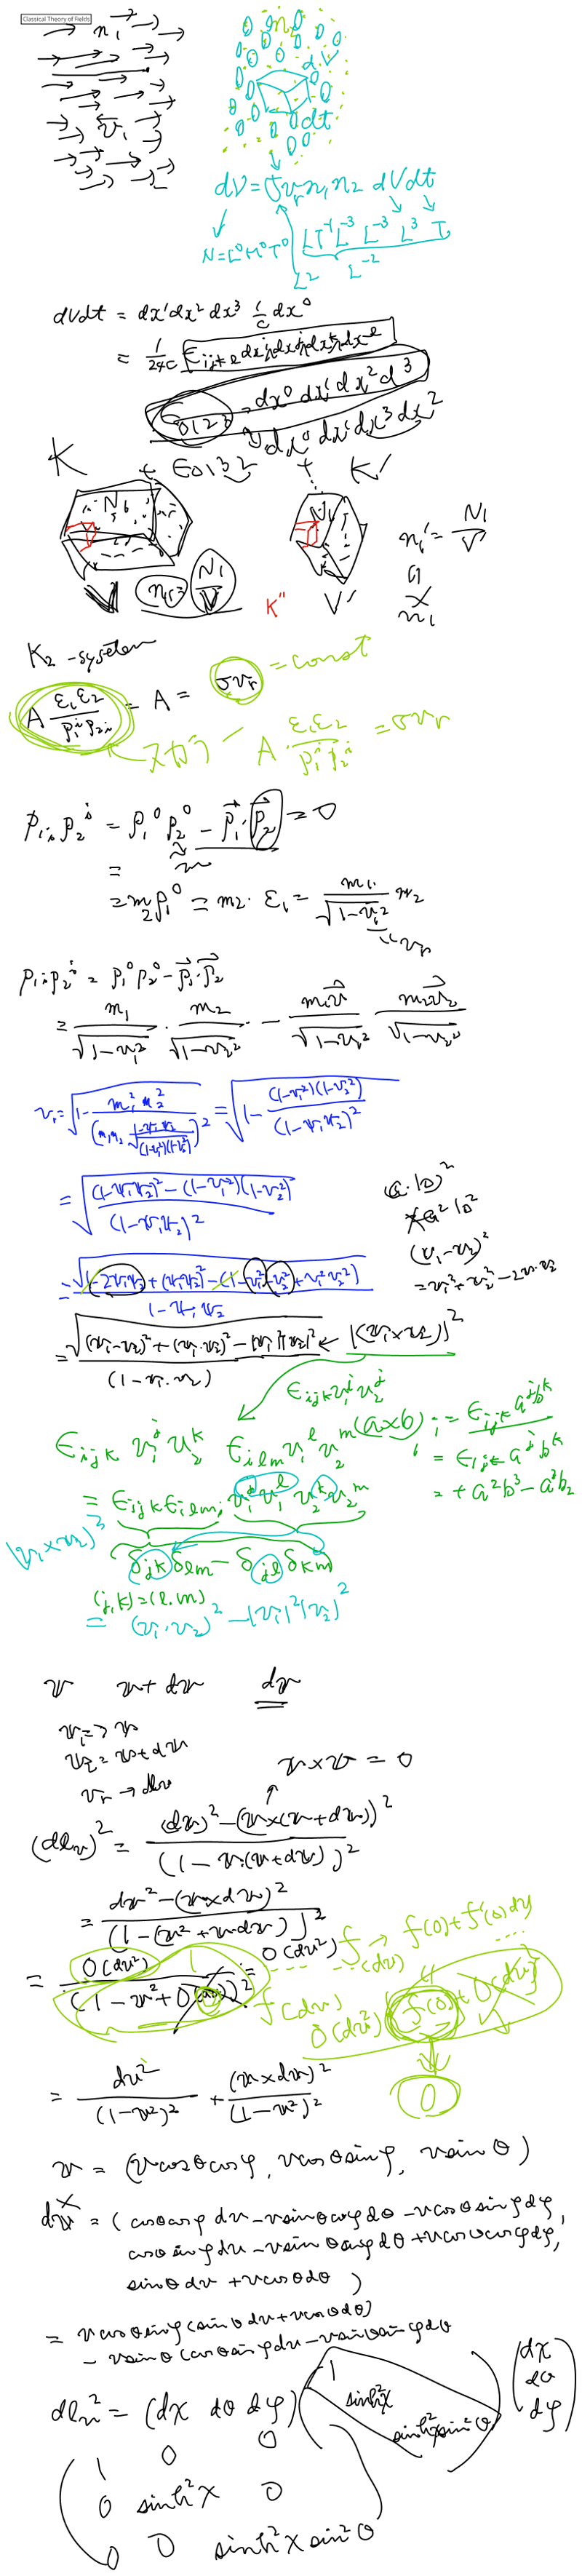 Classical Theory of Fields
n₁
v₁
n₂
dV
dt
dν = σ vᵣ n₁ n₂ dV dt
N = L⁰M⁰T⁰
LT⁻¹ L⁻³ L⁻³ L³ T
L² L⁻²
dVdt = dx¹dx²dx³ 1/c dx⁰
= 1/24c ε_{ijkl} dx^i dx^j dx^k dx^l
ε₀₁₂₃ dx⁰ dx¹ dx² d³
dx⁰ dx¹ dx³ dx²
+ ε₀₁₃₂
K K'
N₁ N₁ n₁' = N₁/V'
V n₁ = N₁/V K'' V'
n₁
K₂-system
A ε₁ε₂/p₁ⁱp₂ᵢ = A = σvᵣ = const
スカラー A ε₁ε₂/p₁ⁱp₂ⁱ = σvᵣ
p₁ᵢp₂ⁱ = p₁⁰p₂⁰ - p₁·p₂ = 0
= m
= m₂p₁⁰ = m₂·ε₁ = m₁/√(1-v₁²) m₂
vᵣ
p₁ᵢp₂ⁱ = p₁⁰p₂⁰ - p₁·p₂
= m₁/√(1-v₁²) · m₂/√(1-v₂²) - m₁v/√(1-v₁²) m₂v₂/√(1-v₂²)
vᵣ = √(1 - m₁²m₂²/(m₁m₂ (1-v₁v₂)/√((1-v₁²)(1-v₂²)))²) = √(1 - (1-v₁²)(1-v₂²)/(1-v₁v₂)²)
= √(((1-v₁v₂)² - (1-v₁²)(1-v₂²))/(1-v₁v₂)²)
(a·b)²
a²b²
= √(1-2v₁v₂+(v₁v₂)²-(1-v₁²-v₂²+v₁²v₂²))/(1-v₁v₂)
(v₁-v₂)²
= v₁²+v₂²-2v₁·v₂
= √((v₁-v₂)²+(v₁·v₂)²-|v₁|²|v₂|²)/(1-v₁·v₂) ← |(v₁×v₂)|²
ε_{ijk}v₁^i v₂^j
ε_{ijk} v₁^j v₂^k ε_{ilm} v₁^l v₂^m
(a×b)ᵢ = ε_{ijk}a^j b^k
= ε_{1jk} a^j b^k
= +a²b³-a³b₂
= ε_{ijk}ε_{ilm} v₁^j v₁^l v₂^k v₂^m
(v₁×v₂)²
δ_{jk}δ_{lm} - δ_{jl}δ_{km}
(j,k)=(l,m)
= (v₁·v₂)² - |v₁|²|v₂|²
v v+dv dv
v₁ → v
v₂ = v+dv
vᵣ → dlv
v×v = 0
(dlv)² = ((dv)²-(v×(v+dv))²)/(1-v·(v+dv))²
= (dv²-(v×dv)²)/(1-(v²+v·dv))²
= O(dv²)/(1-v²+O(dv))² = O(dv²)
f(dv) → f(0)+f'(0)dv
f(dv)
O(dv²) (f(0)+O(dv))
0
= dv²/(1-v²)² + (v×dv)²/(1-v²)²
v = (v cosθcosφ, v cosθsinφ, v sinθ)
dv = (cosθcosφ dv - v sinθcosφ dθ - v cosθ sinφ dφ,
cosθ sinφ dv - v sinθ sinφ dθ + v cosθcosφ dφ,
sinθ dv + v cosθ dθ )
= v cosθ sinφ (sinθ dv + v cosθ dθ)
- v sinθ (cosθ sinφ dv - v sinθ sinφ dθ
dlv² = (dχ dθ dφ) (1 sinh²χ sinh²χ sin²θ) (dχ dθ dφ)
1 0 0
0 sinh²χ 0
0 0 sinh²χ sin²θ